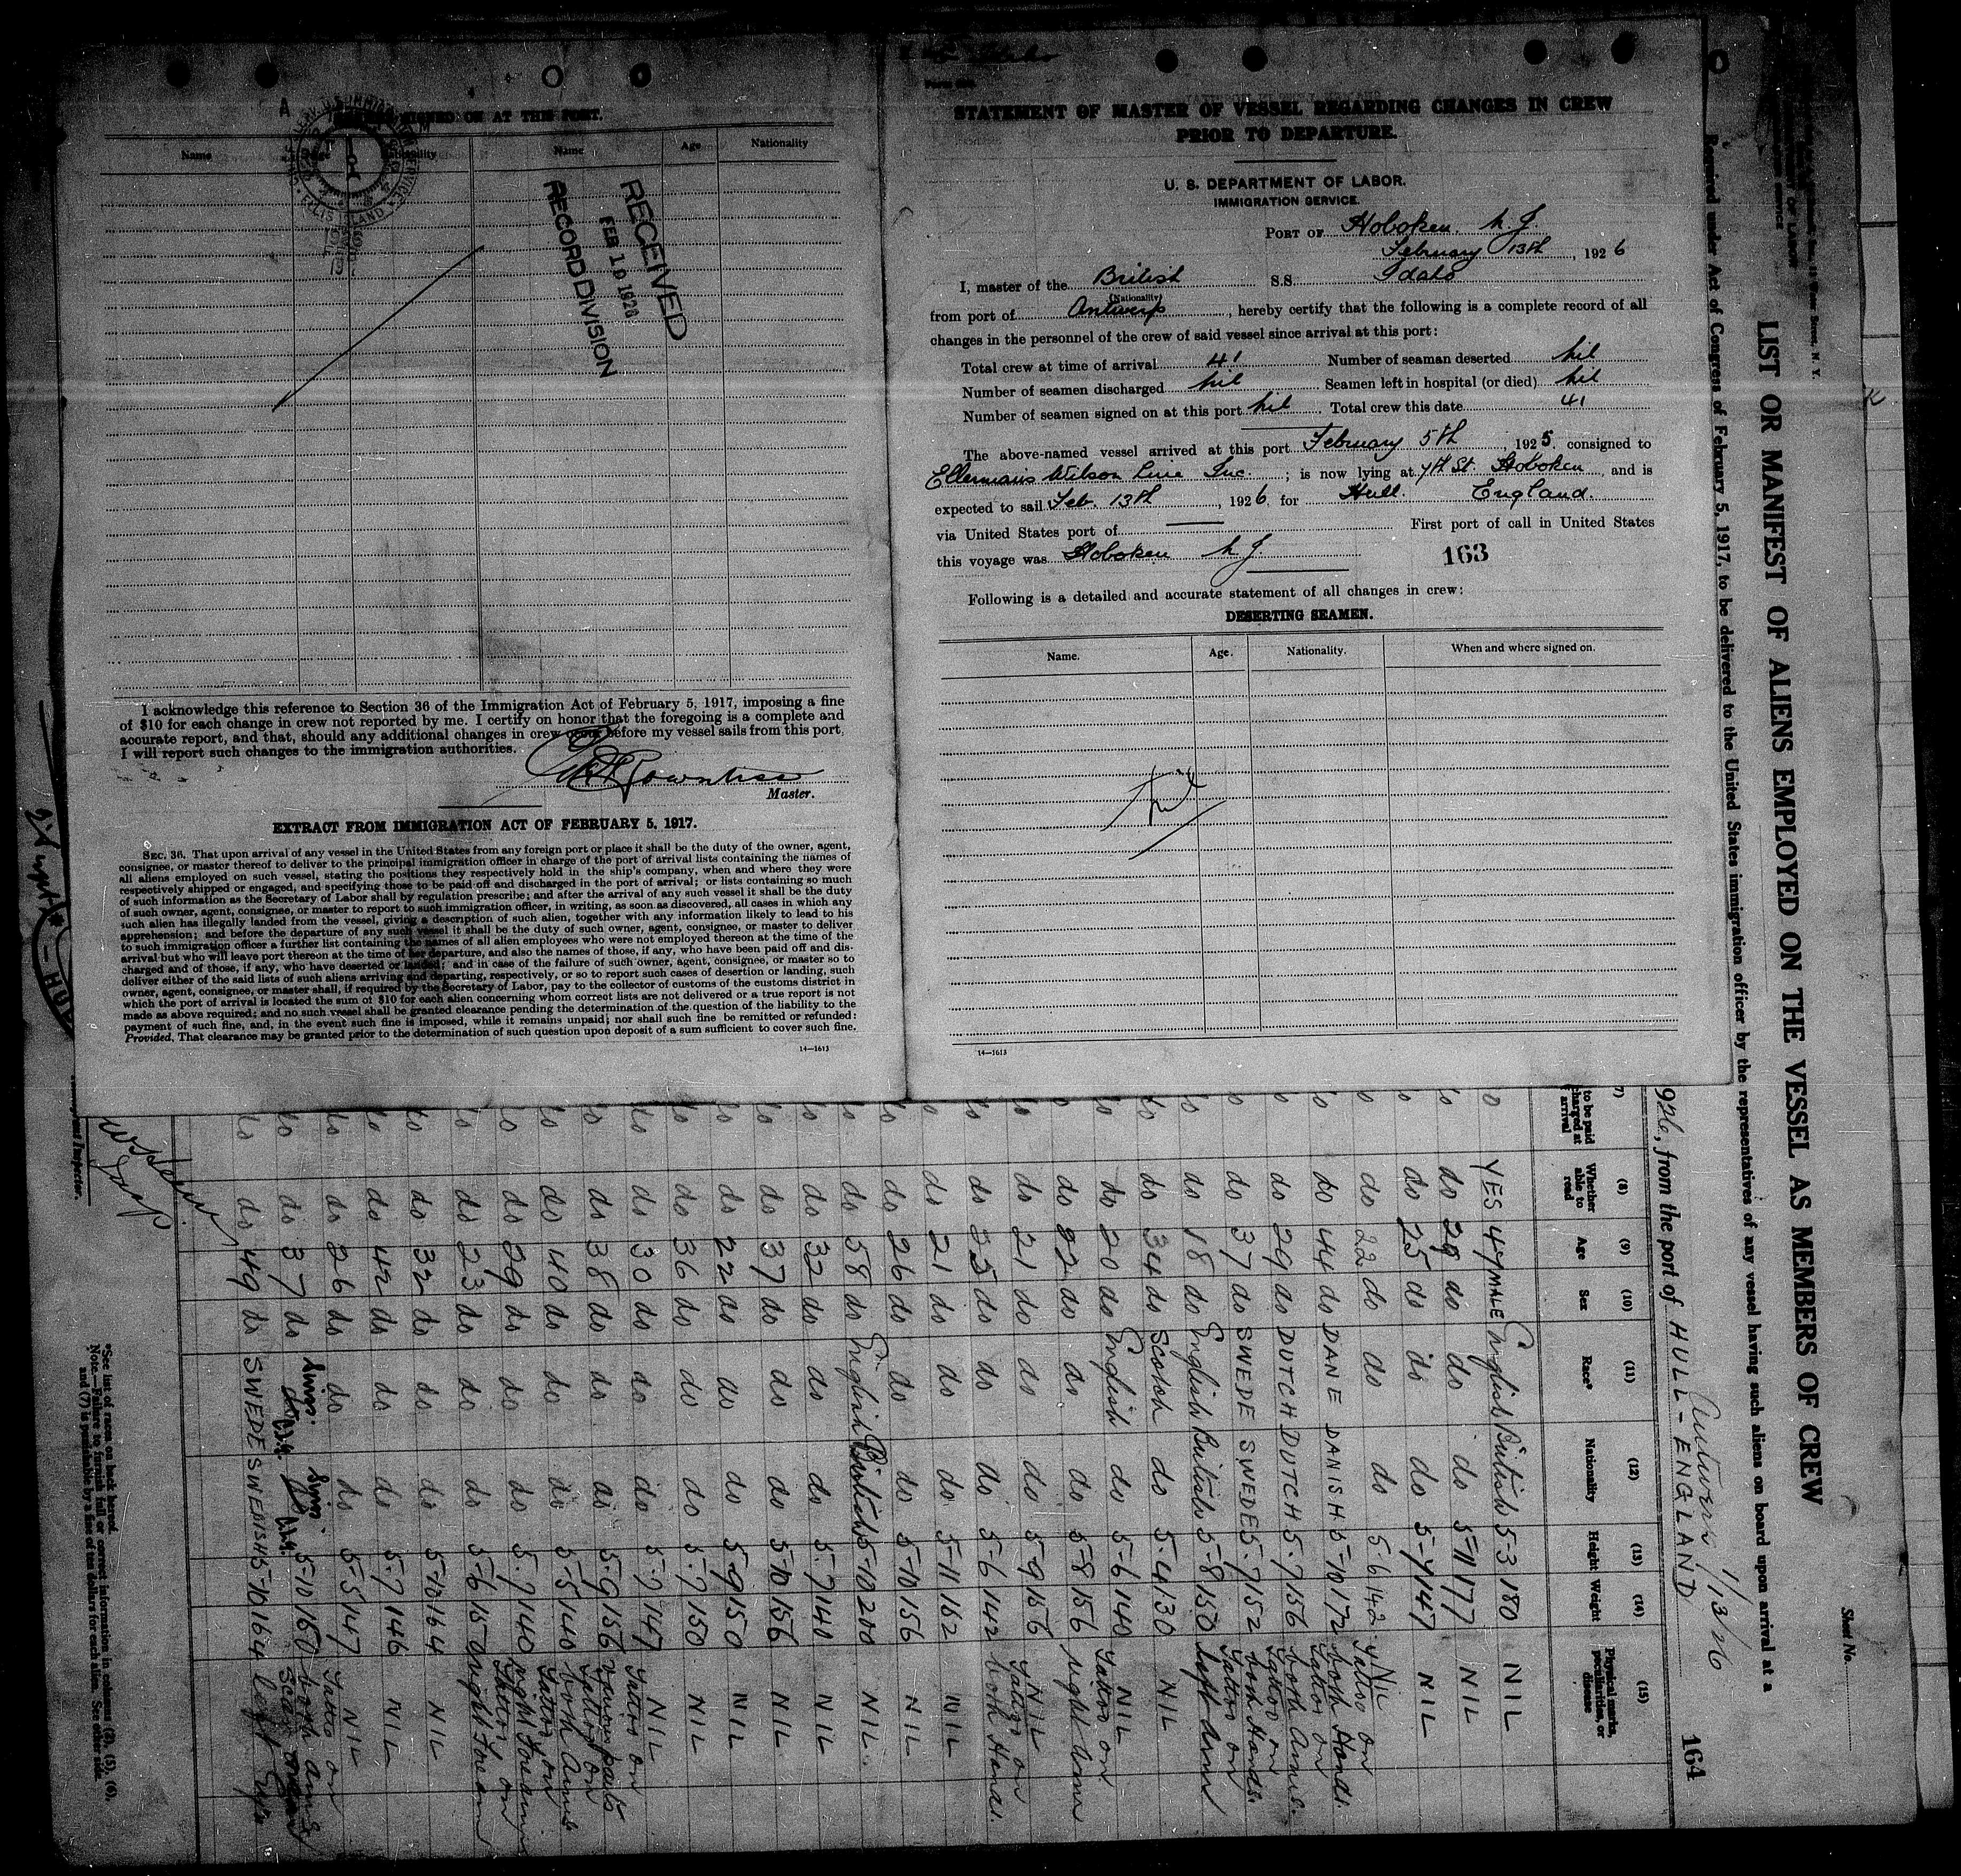 SIGNED ON AT THIS PORT.
Name Age Nationality Name Age Nationality
U.S. IMMIGRATION SERVICE
ELLIS ISLAND
RECEIVED
FEB 1 1926
RECORD DIVISION
I acknowledge this reference to Section 36 of the Immigration Act of February 5, 1917, imposing a fine
of $10 for each change in crew not reported by me. I certify on honor that the foregoing is a complete and
accurate report, and that, should any additional changes in crew occur before my vessel sails from this port,
I will report such changes to the immigration authorities.
Master.
EXTRACT FROM IMMIGRATION ACT OF FEBRUARY 5, 1917.
SEC. 36. That upon arrival of any vessel in the United States from any foreign port or place it shall be the duty of the owner, agent,
consignee, or master thereof to deliver to the principal immigration officer in charge of the port of arrival lists containing the names of
all aliens employed on such vessel, stating the positions they respectively hold in the ship's company, when and where they were
respectively shipped or engaged, and specifying those to be paid off and discharged in the port of arrival; or lists containing so much
of such information as the Secretary of Labor shall by regulation prescribe; and after the arrival of any such vessel it shall be the duty
of such owner, agent, consignee, or master to report to such immigration officer, in writing, as soon as discovered, all cases in which any
such alien has illegally landed from the vessel, giving a description of such alien, together with any information likely to lead to his
apprehension; and before the departure of any such vessel it shall be the duty of such owner, agent, consignee, or master to deliver
to such immigration officer a further list containing the names of all alien employees who were not employed thereon at the time of the
arrival but who will leave port thereon at the time of her departure, and also the names of those, if any, who have been paid off and dis-
charged and of those, if any, who have deserted or landed; and in case of the failure of such owner, agent, consignee, or master so to
deliver either of the said lists of such aliens arriving and departing, respectively, or so to report such cases of desertion or landing, such
owner, agent, consignee, or master shall, if required by the Secretary of Labor, pay to the collector of customs of the customs district in
which the port of arrival is located the sum of $10 for each alien concerning whom correct lists are not delivered or a true report is not
made as above required; and no such vessel shall be granted clearance pending the determination of the question of the liability to the
payment of such fine, and, in the event such fine is imposed, while it remains unpaid; nor shall such fine be remitted or refunded:
Provided, That clearance may be granted prior to the determination of such question upon deposit of a sum sufficient to cover such fine.
14—1613
STATEMENT OF MASTER OF VESSEL REGARDING CHANGES IN CREW
PRIOR TO DEPARTURE.
U. S. DEPARTMENT OF LABOR.
IMMIGRATION SERVICE.
PORT OF Hoboken. N. J.
February 13th, 1926
I, master of the British S.S. Idaho
(Nationality)
from port of Antwerp, hereby certify that the following is a complete record of all
changes in the personnel of the crew of said vessel since arrival at this port:
Total crew at time of arrival 41 Number of seaman deserted Nil
Number of seamen discharged Nil Seamen left in hospital (or died) Nil
Number of seamen signed on at this port Nil Total crew this date 41
The above-named vessel arrived at this port February 5th, 1925. consigned to
Ellermans Wilson Line Inc. ; is now lying at 7th St. Hoboken, and is
expected to sail Feb. 13th, 1926. for Hull. England.
via United States port of First port of call in United States
this voyage was Hoboken N J. 163
Following is a detailed and accurate statement of all changes in crew:
DESERTING SEAMEN.
Name. Age. Nationality. When and where signed on.
Nil
14—1613
Sheet No.
LIST OR MANIFEST OF ALIENS EMPLOYED ON THE VESSEL AS MEMBERS OF CREW
Required under Act of Congress of February 5, 1917, to be delivered to the United States immigration officer by the representatives of any vessel having such aliens on board upon arrival at a
Antwerp 1/13/26
926, from the port of HULL - ENGLAND
164
(7) (8) (9) (10) (11) (12) (13) (14) (15)
to be paid charged at arrival Whether able to read Age Sex Race* Nationality Height Weight Physical marks, peculiarities, or disease
YES 47 MALE English British 5-3 180 NIL
do 29 do do do 5-11 177 NIL
do 25 do do do 5-4 147 NIL
do 22 do do do 5-6 142 Nil
do 44 do DANE DANISH 5-10 172 Tattoo on both Hands.
do 29 do DUTCH DUTCH 5-7 156 Tattoo on both Arms.
do 37 do SWEDE SWEDE 5-7 152 Tattoo on both Hands.
do 18 do English British 5-8 150 Tattoo on left arm
do 34 do Scotch do 5-4 130 NIL
do 20 do English do 5-6 140 NIL
do 22 do do do 5-8 156 Tattoo on right arm
do 21 do do do 5-9 156 NIL
do 35 do do do 5-6 142 Tattoo on both Hands.
do 21 do do do 5-11 162 NIL
do 26 do do do 5-10 156 NIL
do 58 do English British 5-10 200 NIL.
do 32 do do do 5-7 140 NIL
do 37 do do do 5-10 156 NIL
do 22 do do do 5-9 150 NIL
do 36 do do do 5-7 150 NIL
do 30 do do do 5-7 147 NIL
do 38 do do do 5-9 156 Tattoo on various parts
do 40 do do do 5-5 140 Tattoo on both Arms
do 29 do do do 5-7 140 Tattoo on right Forearm
do 23 do do do 5-6 150 Tattoo on right Forearm
do 32 do do do 5-10 164 NIL
do 42 do do do 5-7 146 NIL
do 26 do do do 5-5 147 NIL
do 37 do Swiss. Swiss. 5-10 150 Tattoo on both arms
do 49 do SWEDE SWEDISH 5-10 164 Scar left Eye
Inspector.
*See list of races on back hereof.
Note.—Failure to furnish full or correct information in columns (2), (5), (6),
and (7) is punishable by a fine of ten dollars for each alien. See other side.